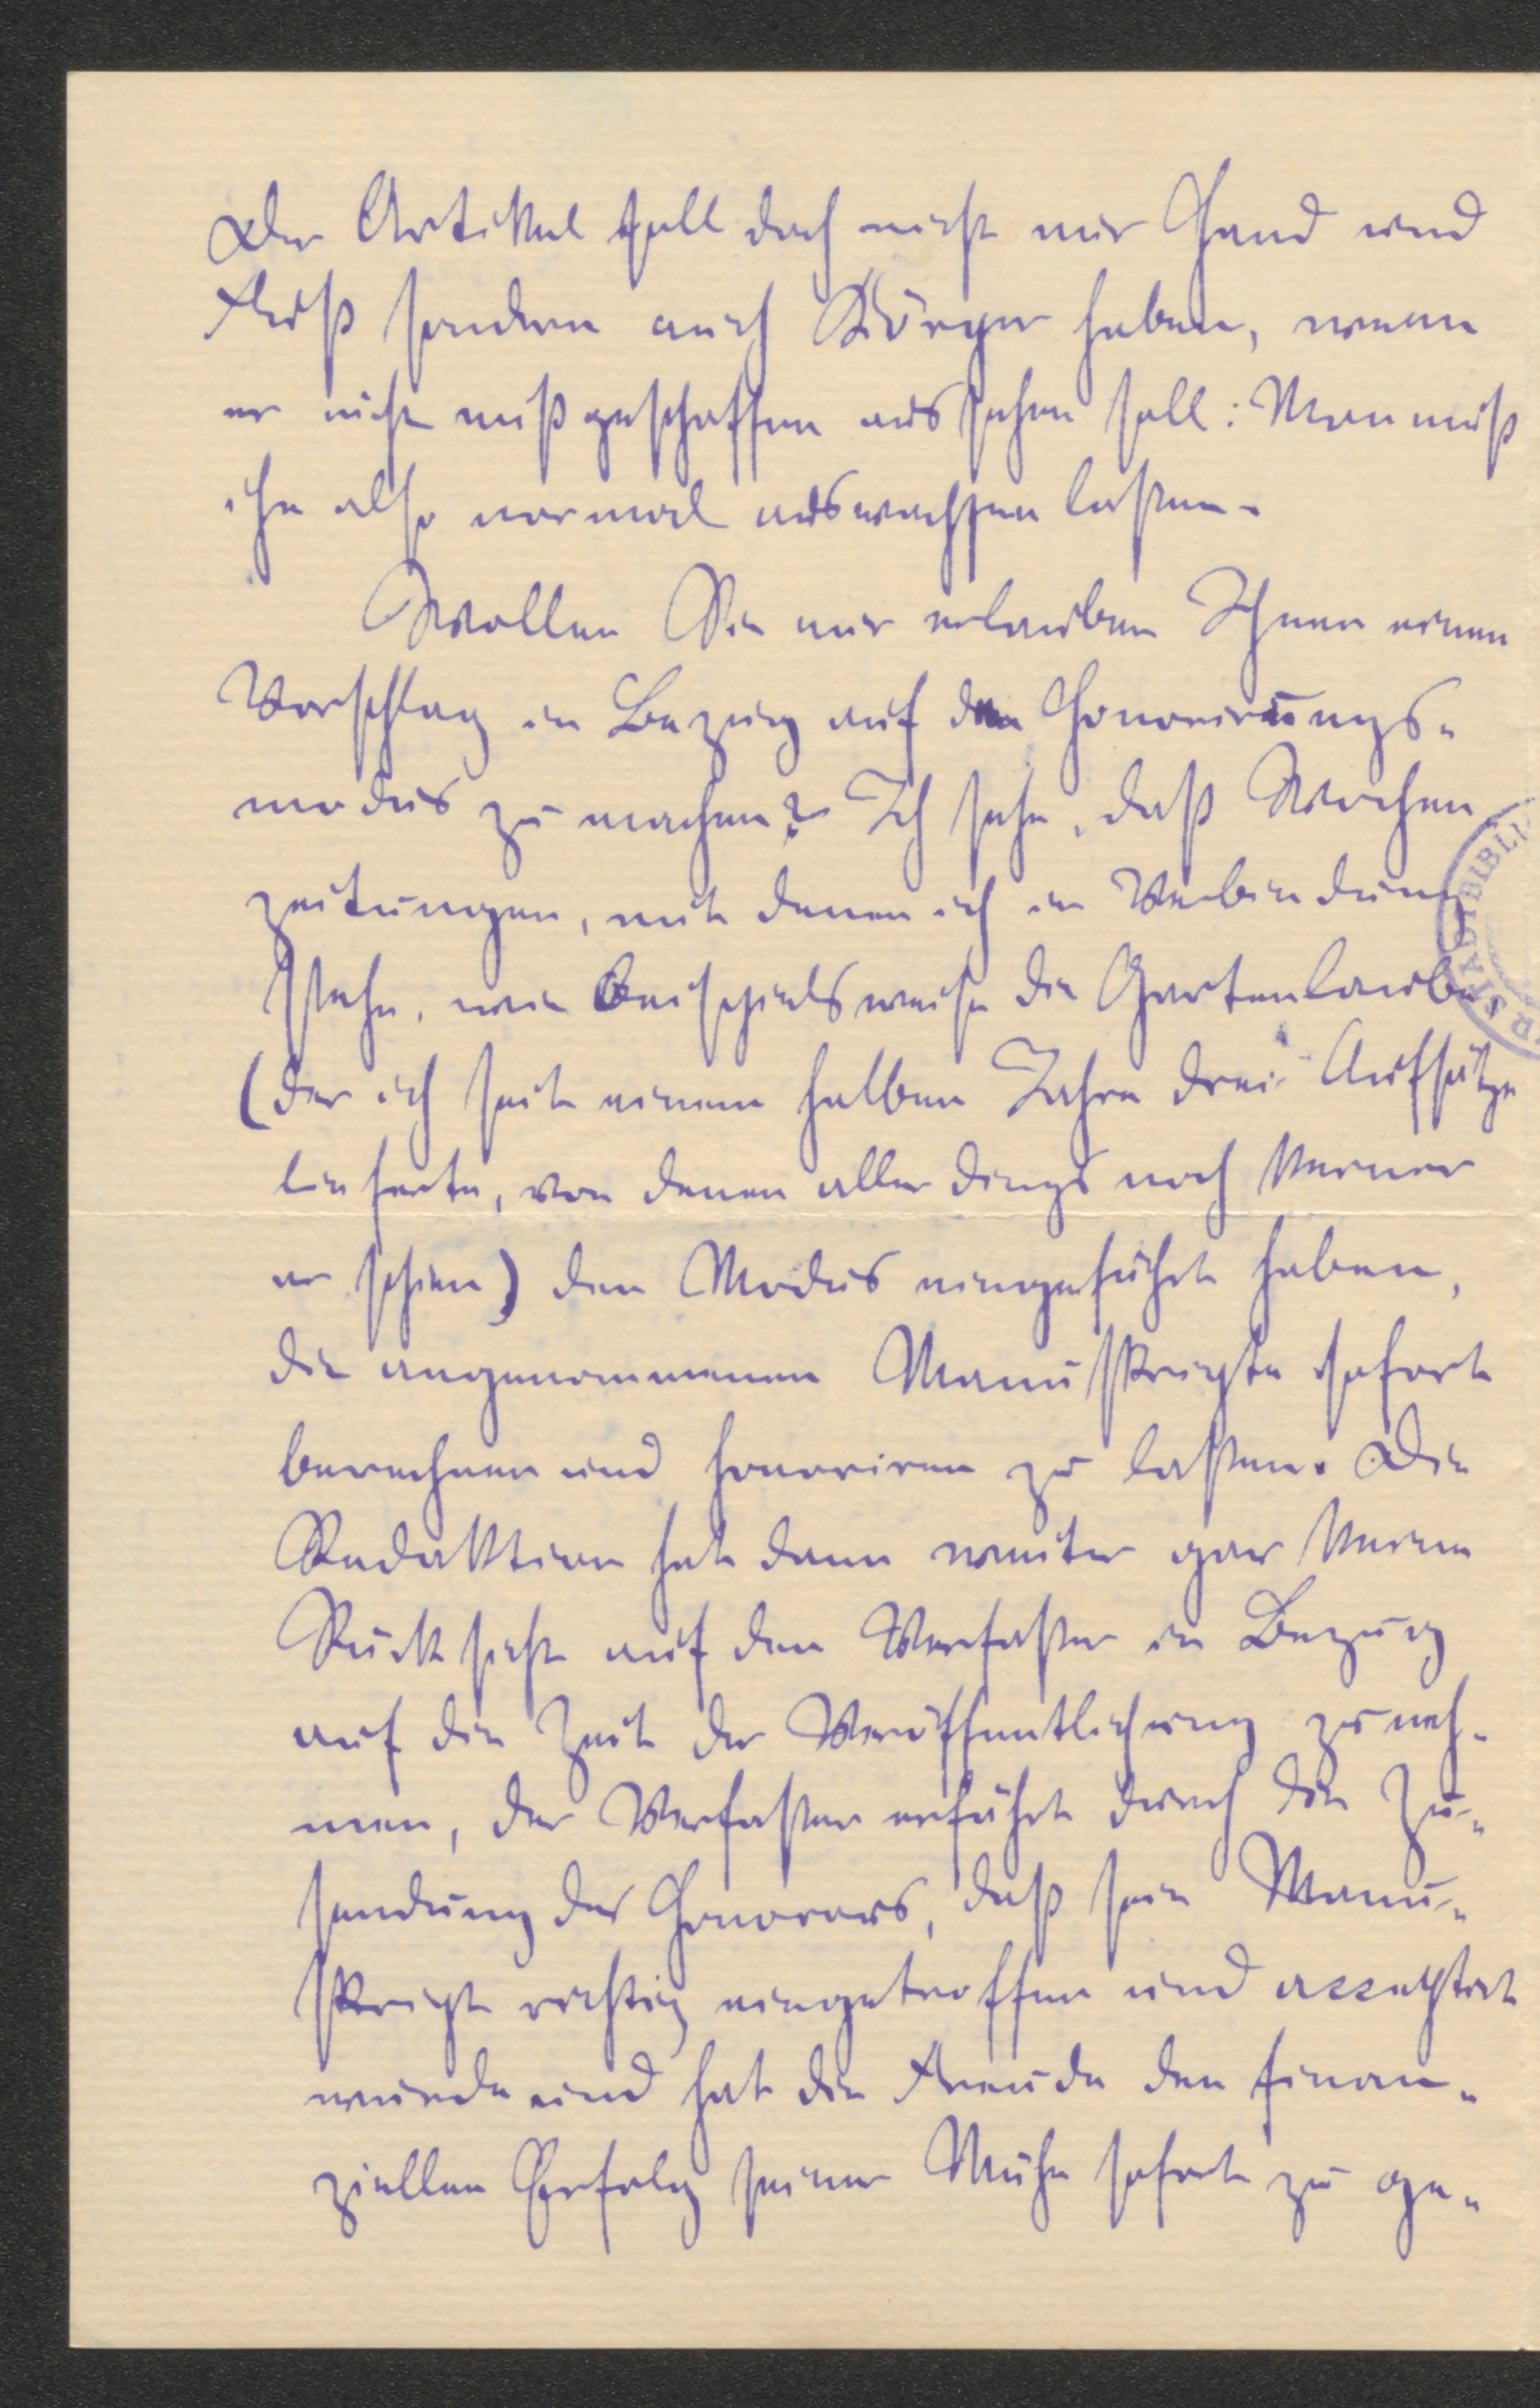 Der Artikel soll doch nicht nur Hand und
Fuß sondern auch Körper haben, wenn
er nicht mißgeschaffen aussehen soll: Man muß
ihn also normal auswachsen lassen.
Wollen Sie mir erlauben Ihnen einen
Vorschlag in Bezug auf den Honorirungs-
modus zu machen? Ich sehe, daß Wochen
zeitungen, mit denen ich in Verbindung
stehe, wie beispielsweise die Gartenlaube
(der ich seit einem halben Jahre drei Aufsätze
lieferte, von denen allerdings noch keiner
erschien) den Modus eingeführt haben,
die angenommenen Manuskripte sofort
berechnen und honoriren zu lassen. Die
Redaktion hat dann weiter gar keine
Rücksicht auf den Verfasser in Bezug
auf die Zeit der Veröffentlichung zu neh-
men, der Verfasser erfährt durch die Zu-
sendung des Honorars, daß sein Manu-
skript richtig eingetroffen und acceptirt
wurde und hat die Freude den finan-
ziellen Erfolg seiner Mühe sofort zu ge-